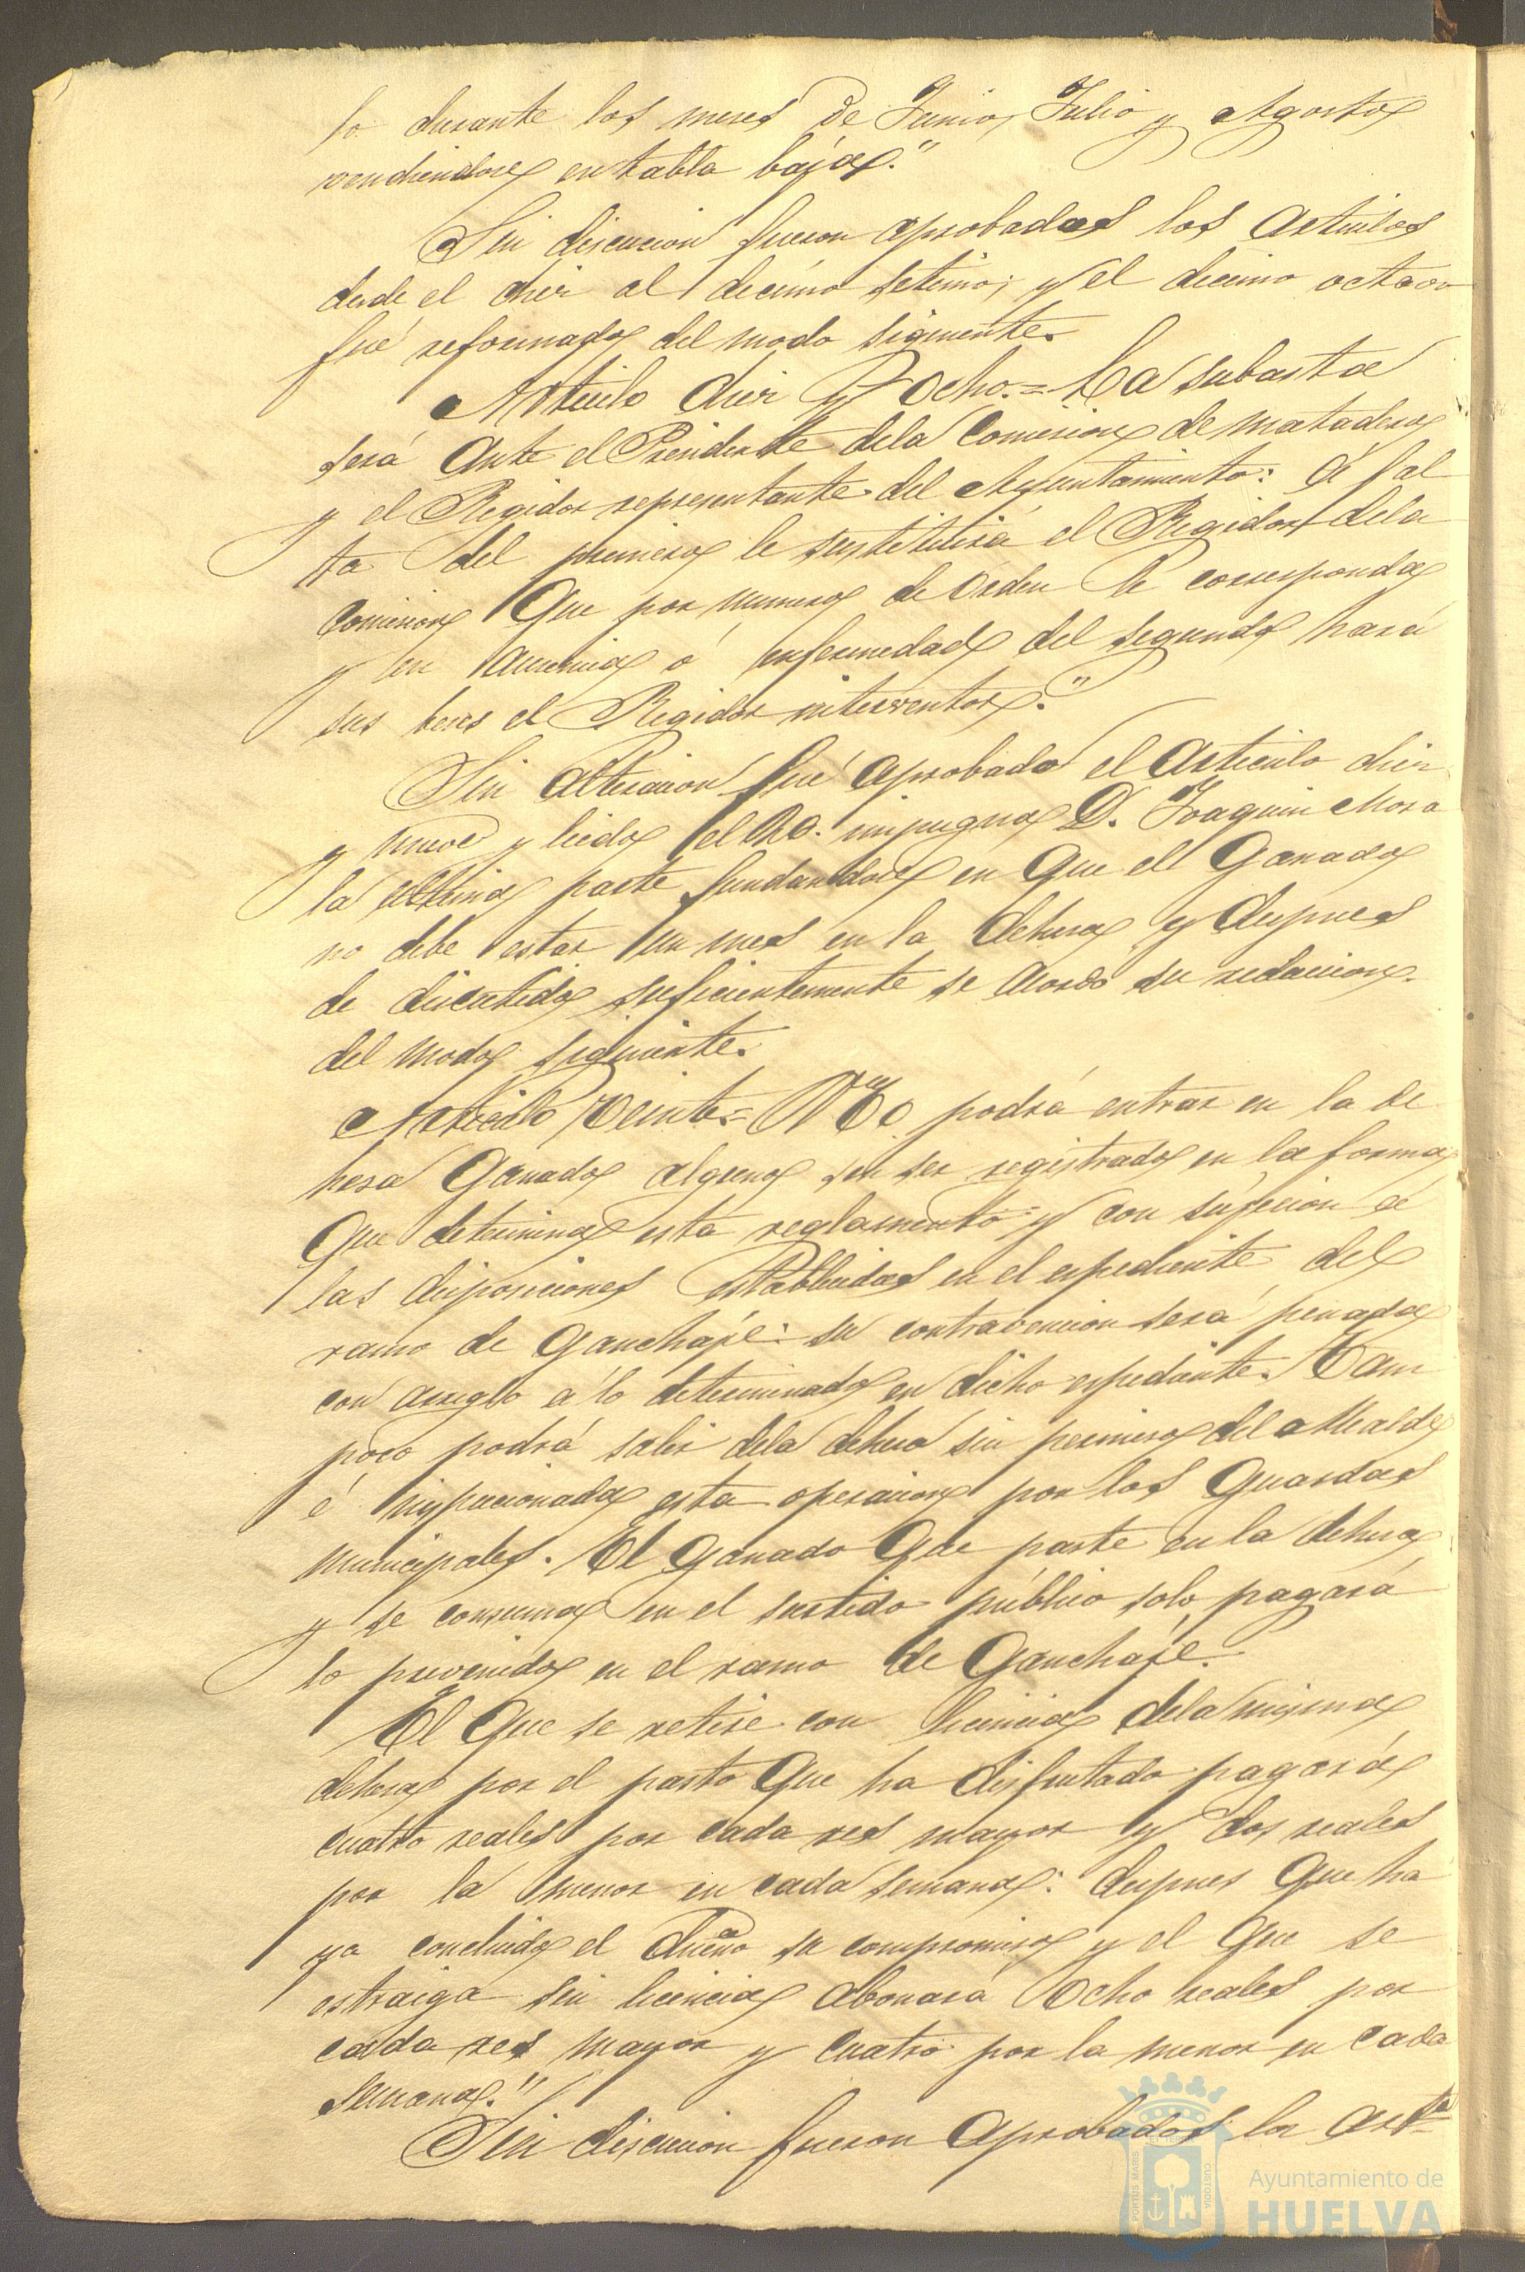 lo durante los meses de Junio, Julio y Agosto
vendiendose en tabla baja."
Sin discucion fueron aprobados los articulos
desde el diez al decimo setimo; y el decimo octavo
fué reformado del modo siguiente.
Articulo diez y ocho.= La subasta
será ante el Presidente dela Comision de matadero
y el Regidor representante del Ayuntamiento: á fal
ta del primero le sustituirá el Regidor dela
Comision que por numero de orden le corresponda
y en ausencia ó enfermedad del segundo hará
sus veces el Regidor interventor."
Sin alteracion fué aprobado el articulo diez
y nueve y leido el 20. impugna D. Joaquin Mora
la ultima parte fundandose en que el Ganado
no debe estar un mes en la dehesa y despues
de discutido suficientemente se acordo su redaccion
del modo siguiente.
Articulo veinte.= No podrá entrar en la de
hesa Ganado alguno sin ser registrado en la forma
que determina esta reglamento y con sujecion á
las disposiciones establecidas en el espediente del
ramo de Ganchaje: su contravencion será penada
con arreglo á lo determinado en dicho espediente. Tam
poco podrá salir dela dehesa sin permiso del Alcalde
é inspeccionada esta operacion por los Guardas
municipales. El Ganado que paste en la dehesa
y se consuma en el surtido público solo pagará
lo prevenido en el ramo de Ganchaje.
El que se retire con licencia dela misma
dehesa por el pasto que ha disfrutado pagará
cuatro reales por cada res mayor y dos reales
por la menor en cada semana: despues que ha
ya concluido el dueño su compromiso y el que se
estraiga sin licencia abonará ocho reales por
cada res mayor y cuatro por la menor en cada
semana."
Sin discucion fueron aprobados los art
PORTUS MARIS
CUSTODIA
Ayuntamiento de
HUELVA